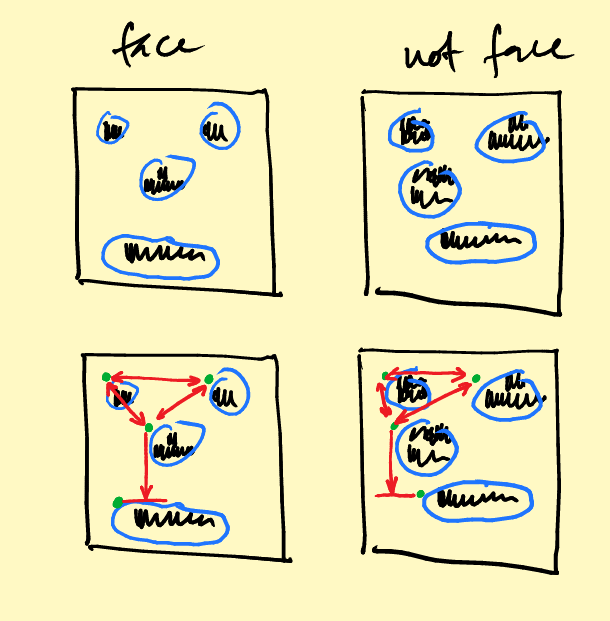 face
not face